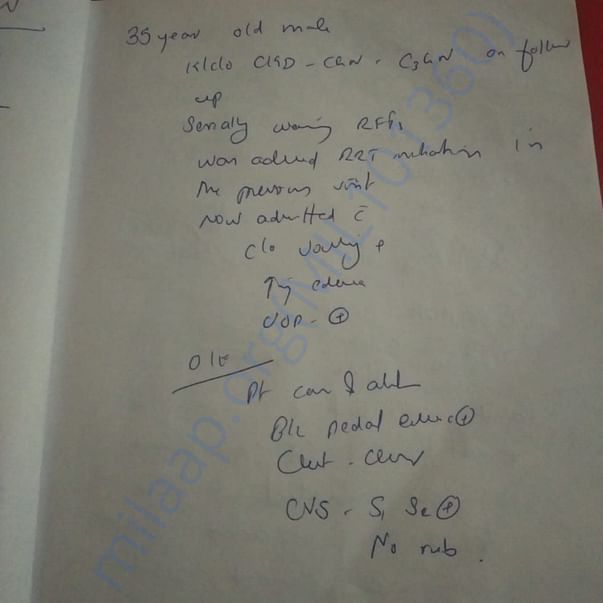 35 year old male
K/c/o CKD - CGN - C3GN on follow
up
Serially worsening RFTs
was advised RRT initiation in
the previous visit
now admitted c̄
c/o vomiting +
↑ing edema
UOP - ⊕
O/E
Pt con & alert
B/L pedal edema ⊕
Chest - clear
CVS - S1 S2 ⊕
No rub.
milaap.org(MIL101360)